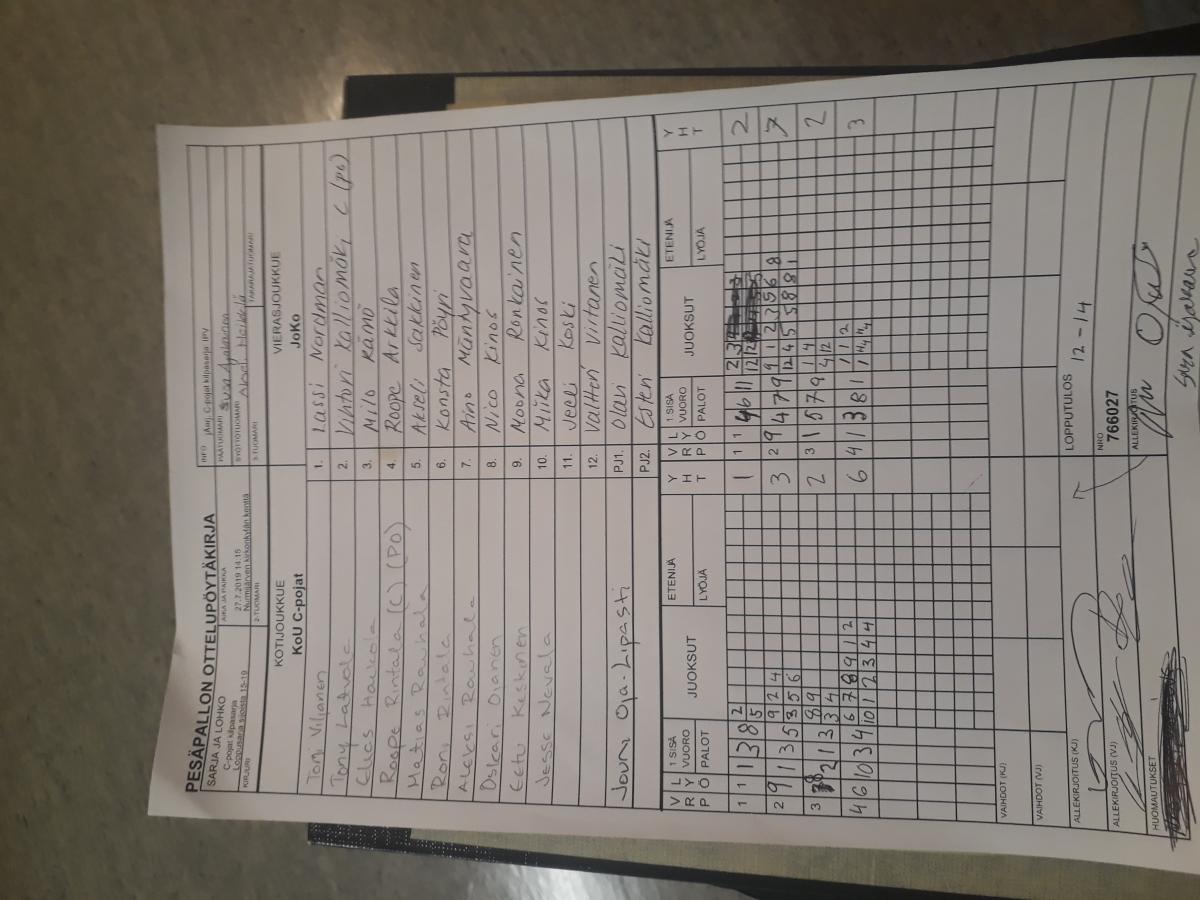 PESÄPALLON OTTELUPÖYTÄKIRJA
SARJA JA LOHKO
C-pojat kilpasarja
Loppusarja sijoista 15-19
AIKA JA PAIKKA
27.7.2019 14.15
Nurmijärven kirkonkylän kenttä
INFO
C-pojat kilpasarja
PÄÄTUOMARI
SYÖTTÖTUOMARI
KIRJURI
2-TUOMARI
3-TUOMARI
TAKARAJATUOMARI
KOTIJOUKKUE
KoU C-pojat
VIERASJOUKKUE
JoKo
Tomi Viljanen 1. Lassi Nordman
Tony Latvala 2. Vihtori Kalliomäki, C (po)
Elias Haukola 3. Milo Rämö
Roope Rintala (C) (PO) 4. Roope Arkkila
Matias Rauhala 5. Akseli Sakkinen
Roni Rintala 6. Konsta Pöyri
Aleksi Rauhala 7. Aino Mäntyvaara
Oskari Ojanen 8. Nico Kinos
Eetu Keskinen 9. Noona Ronkainen
Jesse Nevala 10. Miika Kinos
11. Jeeli Koski
12. Valtteri Virtanen
Jouni Oja-Lipasti PJ1. Olavi Kalliomäki
PJ2. Esteri Kalliomäki
V R P L Y Ö 1 SISÄ VUORO PALOT JUOKSUT ETENIJÄ LYÖJÄ Y H T
V R P L Y Ö 1 SISÄ VUORO PALOT JUOKSUT ETENIJÄ LYÖJÄ Y H T
1 1 1 3 8 2 5 1
1 1 2
2 9 1 3 5 9 2 4 3 5 6 3
2 9 4 7 9 9 1 2 3 5 6 8 12 4 5 5 8 8 1 7
3 2 1 3 8 9 3 4 2
3 1 5 7 9 1 4 4 12 2
4 6 10 3 4 6 7 8 9 1 2 10 1 2 3 4 4 6
4 1 3 8 1 1 1 2 3
VAIHDOT (KJ)
VAIHDOT (VJ)
ALLEKIRJOITUS (KJ)
LOPPUTULOS 12-14
ALLEKIRJOITUS (VJ)
NRO
766027
HUOMAUTUKSET
ALLEKIRJOITUS